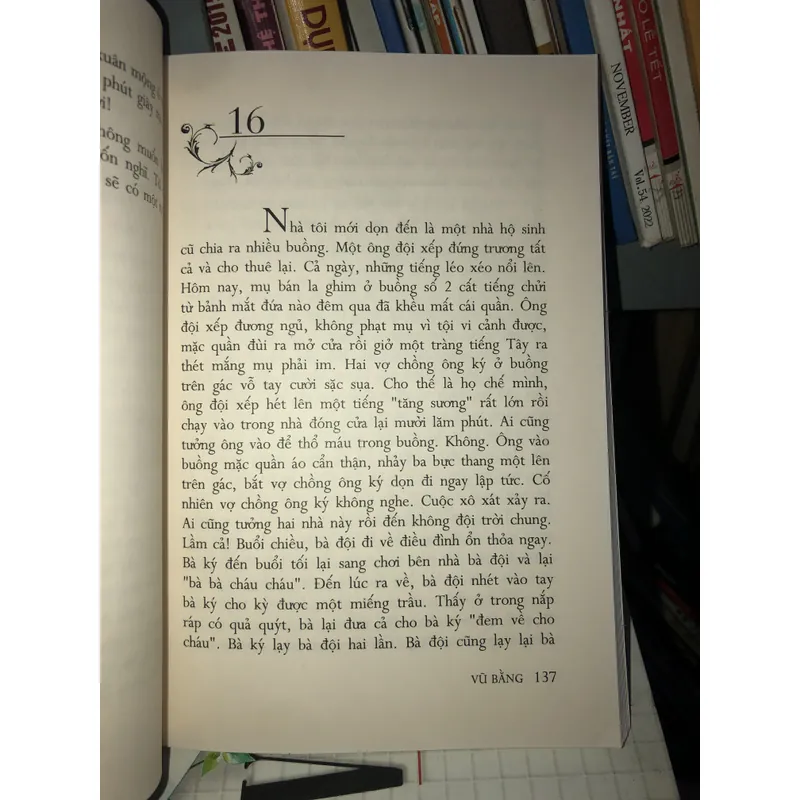 xuân mộng
phút giây
không muốn
nghĩ.
sẽ có một
16
Nhà tôi mới dọn đến là một nhà hộ sinh
cũ chia ra nhiều buồng. Một ông đội xếp đứng trương tất
cả và cho thuê lại. Cả ngày, những tiếng léo xéo nổi lên.
Hôm nay, mụ bán la ghim ở buồng số 2 cất tiếng chửi
từ bảnh mắt đứa nào đêm qua đã khều mất cái quần. Ông
đội xếp đương ngủ, không phạt mụ vì tội vi cảnh được,
mặc quần đùi ra mở cửa rồi giở một tràng tiếng Tây ra
thét mắng mụ phải im. Hai vợ chồng ông ký ở buồng
trên gác vỗ tay cười sặc sụa. Cho thế là họ chế mình,
ông đội xếp hét lên một tiếng "tăng sương" rất lớn rồi
chạy vào trong nhà đóng cửa lại mười lăm phút. Ai cũng
tưởng ông vào để thổ máu trong buồng. Không. Ông vào
buồng mặc quần áo cẩn thận, nhảy ba bực thang một lên
trên gác, bắt vợ chồng ông ký dọn đi ngay lập tức. Cố
nhiên vợ chồng ông ký không nghe. Cuộc xô xát xảy ra.
Ai cũng tưởng hai nhà này rồi đến không đội trời chung.
Lầm cả! Buổi chiều, bà đội đi về điều đình ổn thỏa ngay.
Bà ký đến buổi tối lại sang chơi bên nhà bà đội và lại
"bà bà cháu cháu". Đến lúc ra về, bà đội nhét vào tay
bà ký cho kỳ được một miếng trầu. Thấy ở trong nắp
ráp có quả quýt, bà lại đưa cả cho bà ký "đem về cho
cháu". Bà ký lạy bà đội hai lần. Bà đội cũng lạy lại bà
VŨ BẰNG 137
NHẬT
NOVEMBER
Vol.54 2022
LỄ TẾT